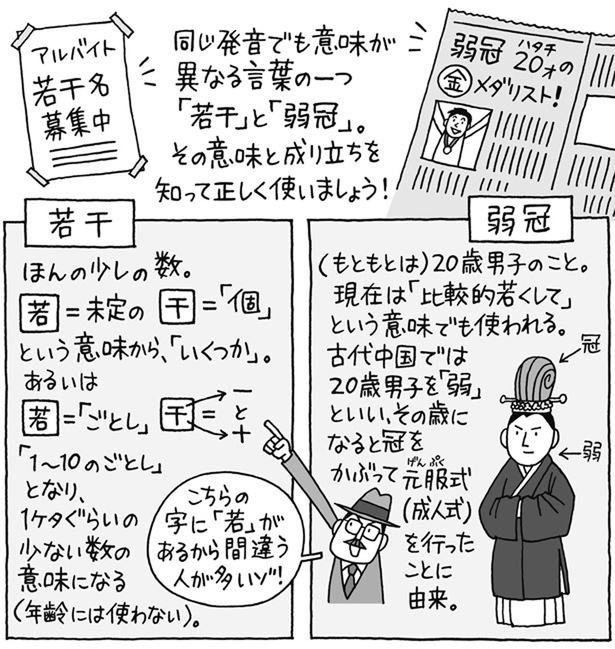 アルバイト
若干名
募集中
同じ発音でも意味が
異なる言葉の一つ
「若干」と「弱冠」。
その意味と成り立ちを
知って正しく使いましょう!
弱冠20才の
ハタチ
金メダリスト!
若干
ほんの少しの数。
若=未定の 干=「個」
という意味から、「いくつか」。
あるいは
若=「ごとし」 干=一と十
「1~10のごとし」
となり、
1ケタぐらいの
少ない数の
意味になる
(年齢には使わない)。
こちらの
字に「若」が
あるから間違う
人が多いゾ!
弱冠
(もともとは)20歳男子のこと。
現在は「比較的若くして」
という意味でも使われる。
古代中国では
20歳男子を「弱」
といい、その歳に
なると冠を
かぶって元服式
げんぷく
(成人式)
を行った
ことに
由来。
冠
弱